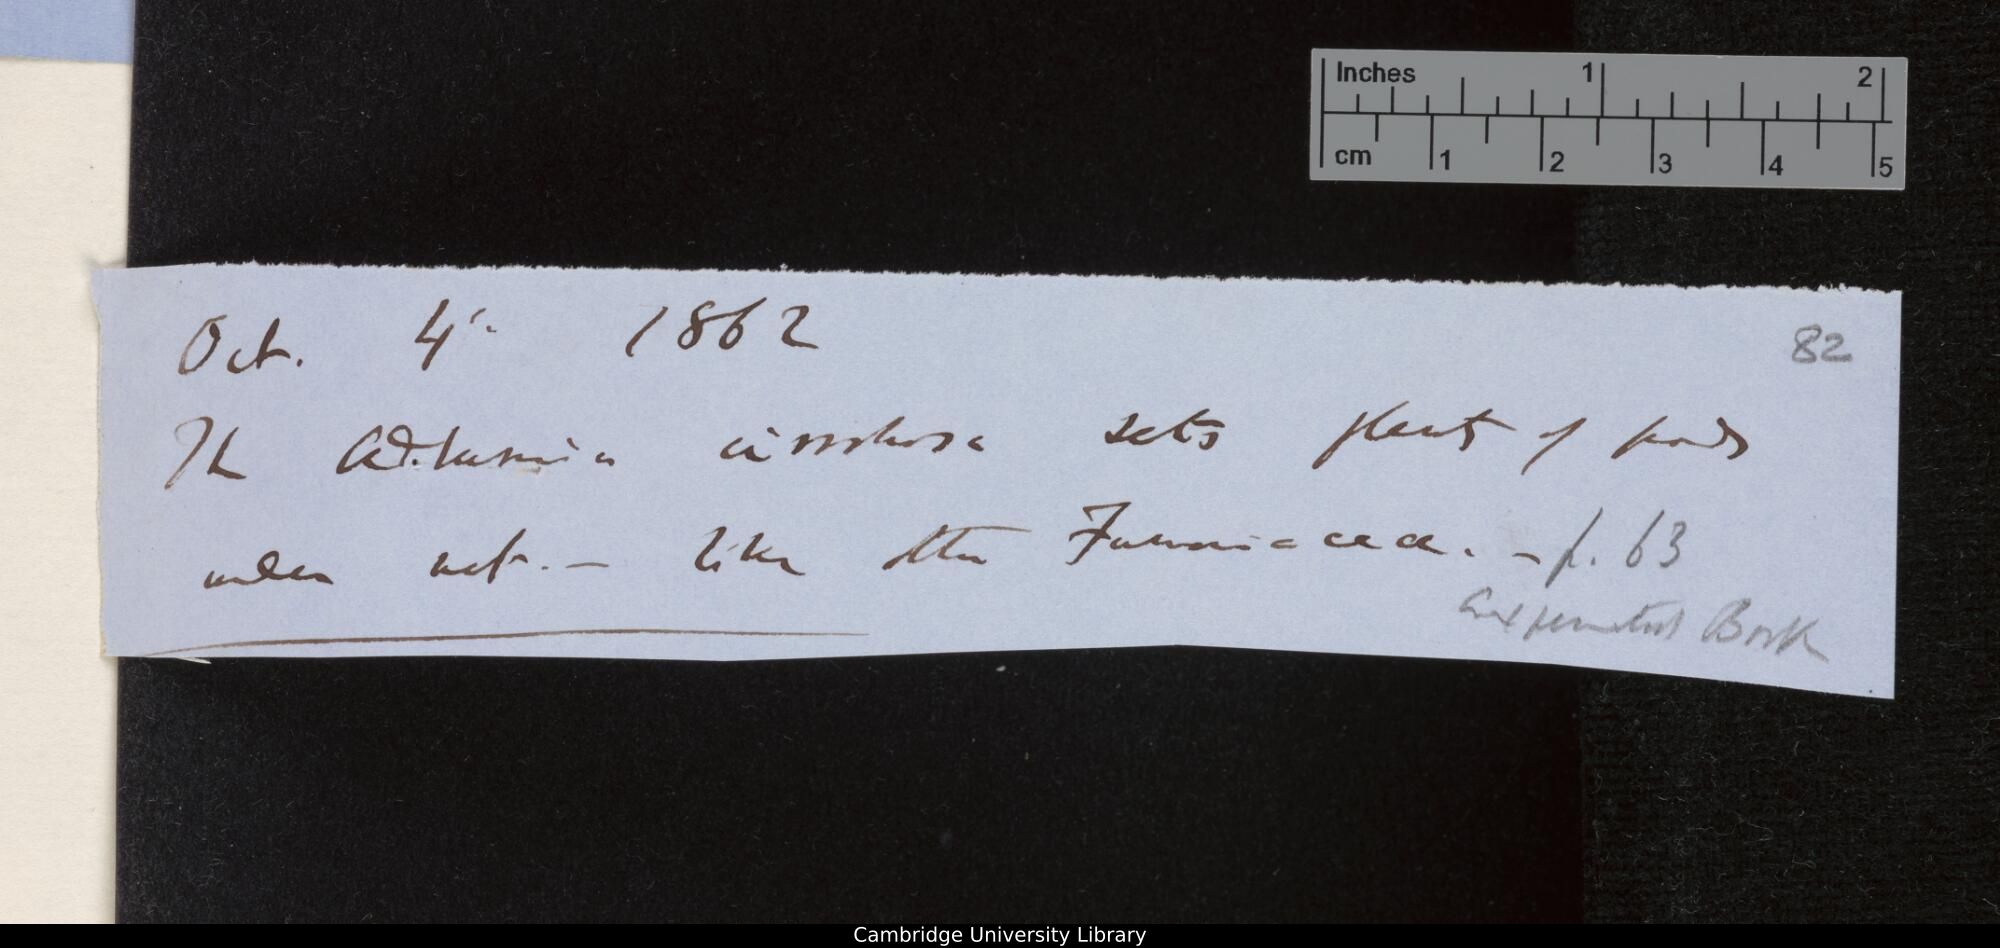 Inches 1 2
cm 1 2 3 4 5
Oct. 4th 1862
82
The Adlumia cirrhosa sets plenty of pods
under net. — like other Fumiaceæ. — p. 63
Experimental Book
Cambridge University Library